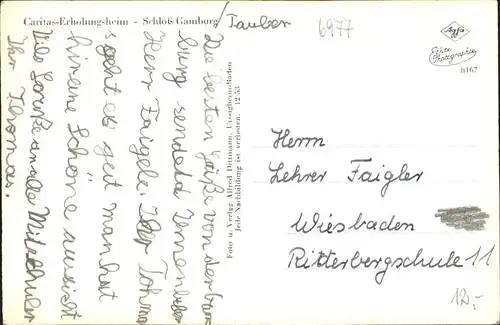 Caritas-Erholungs-heim - Schloß Gamburg / Tauber
6977
Agfa
Echte
Photographie
h167
Die besten Grüße von der bam
burg sendeld Ihnen lieber
Herr Faigele Ihr Tohma
s geht es gut man hat
hir eine Schöne aussicht
Vile Grüße an alle Mitschüler
Ihr Thomas.
Foto u. Verlag Alfred Dittmann, Uissigheim-Baden
Jede Nachbildung ist verboten. 12.53
Herrn
Lehrer Faigler
Wiesbaden
Ritterbergschule 11
12,-